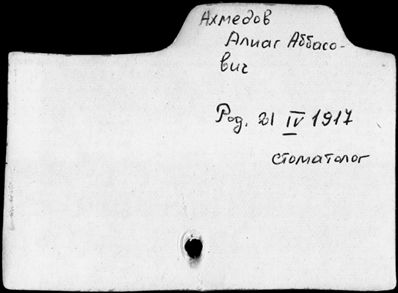 Ахмедов
Алиаг Аббасо-
вич
Род. 21 IV 1917
стоматолог